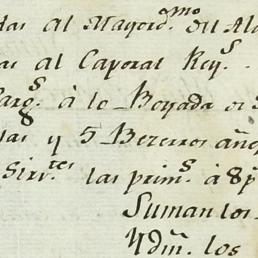 das al Mayordmo del
as al Caporal Reys.
Cargs à lo Boyada
das y 5 Bezerros años
Sirvtes las prims à 8p
Suman los
Ydm. los